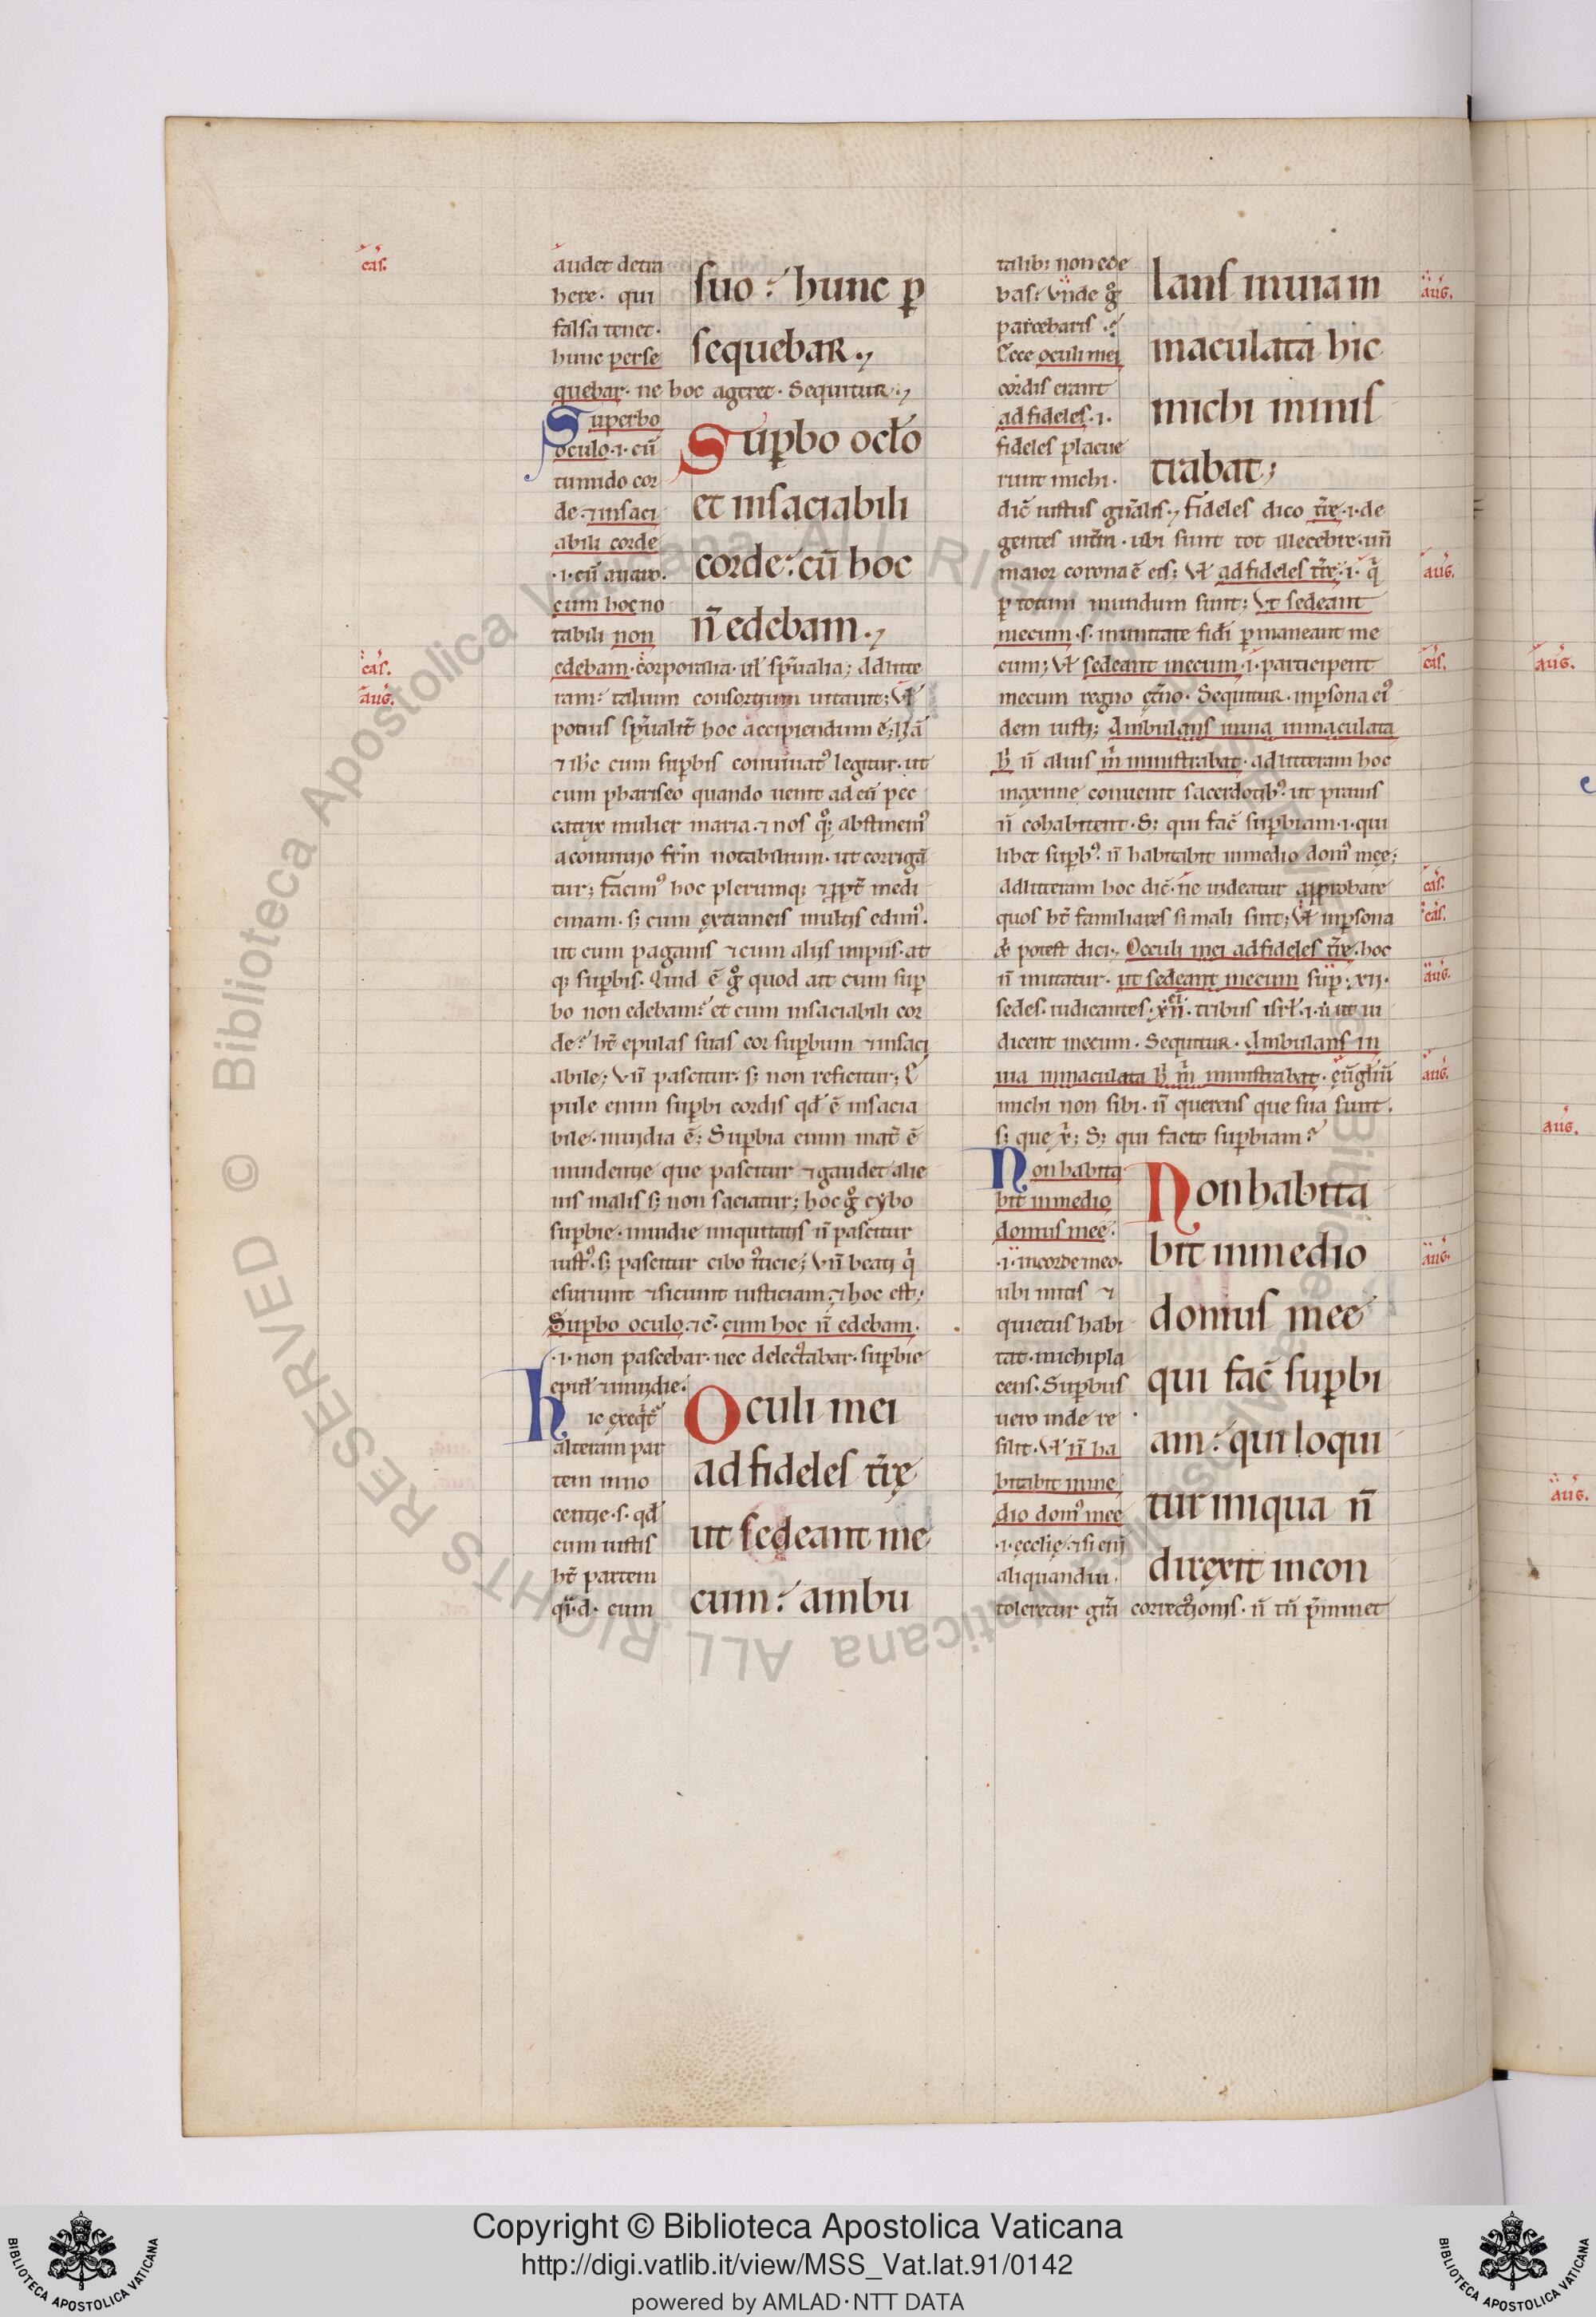 cas̄.
audet detra
here· qui
falsa tenet·
hunc perse
quebar· ne hoc ageret· Sequitur·,
suo: hunc ꝑ
sequebar·,
Superbo
oculo·i·cū
tumido cor
de·⁊ insaci
abili corde
·i·cū auaro·
cum hoc no
tabili non
Suꝑbo oct̄o
et insaciabili
corde: cū hoc
n̄ edebam·,
cas̄.
edebam·corporalia· ul̄ sp̄ualia; ad litte
aug.
ram: talium consortium uitauit; Vl̄
potius sp̄ualit̄ hoc accipiendum ē;
⁊ ih̄c cum suꝑbis conuiuatꝰ legitur· ut
cum phariseo quando uenit ad eū pec
catrix mulier maria·⁊ nos qꝫ abstinemꝰ
a conuiuio fr̄m notabilium· ut corrigā
tur; facimꝰ hoc plerumqꝫ medi
cinam· sꝫ cum extraneis multis edimꝰ·
ut cum paganis ⁊ cum aliis impiis· at
qꝫ suꝑbis· Quid ē gͦ quod ait cum suꝑ
bo non edebam: et cum insaciabili cor
de: ht̄ epulas suas cor suꝑbum ⁊ insaci
abile; Vn̄ pascitur· sꝫ non reficitur; E
pule enim suꝑbi cordis qd̄ ē insacia
bile· inuidia ē; Suꝑbia enim mat̄ ē
inuidentie que pascitur ⁊ gaudet alie
nis malis sꝫ non saciatur; hoc gͦ cybo
suꝑbie· inuidie iniquitatis n̄ pascitur
iustꝰ· sꝫ pascitur cibo iusticie; Vn̄ beati q̄
esuriunt ⁊ siciunt iusticiam·⁊ hoc est;
Suꝑbo oculo·⁊c̄· cum hoc n̄ edebam·
·i· non pascebar· nec delectabar· suꝑbie
epul̄ ⁊ inuidie·
hic
alteram par
tem inno
centie·s· qd̄
cum iustis
ht̄ partem
q·d· cum
Oculi mei
ad fideles t̄rę
ut sedeant me
cum: ambu
talibꝫ non ede
bas: vnde gͦ
pascebaris·?
Ecce oculi mei
cordis erant
ad fideles·i·
fideles placue
runt michi·
lans in uia in
maculata hic
michi minis
trabat;
aug.
dic̄ iustus gn̄alis·, fideles dico t̄re·i·de
gentes in t̄ra· ubi sunt tot illecebre· un̄
maior corona ē eis; Vl̄ ad fideles t̄re·i· q̄
aug.
ꝑ totum mundum sunt; Vt sedeant
mecum·s· in unitate fidei ꝑmaneant me
cum; Vl̄ sedeant mecum·i·participent
cas̄.
mecum regno et̄no· Sequitur· in ꝑsona eiꝰ
dem iusti; Ambulans in uia inmaculata
h̄ n̄ alius m̄ ministrabat· ad litteram hoc
maxime conuenit sacerdotibꝰ· ut prauis
n̄ cohabitent· Sꝫ qui fac̄ suꝑbiam·i·qui
libet suꝑbꝰ n̄ habitabit in medio domꝰ mee;
ad litteram hoc dic̄· ne uideatur approbare
cas̄.
quos ht̄ familiares si mali sint; Vl̄ in ꝑsona
cas̄.
potest dici·, Occuli mei ad fideles t̄re· hoc
n̄ mutatur· ut sedeant mecum suꝑ·xij·
aug.
sedes· iudicantes xii tribus isrl̄·i· ut iu
dicent mecum· Sequitur· Ambulans in
uia inmaculata h̄ m̄ ministrabat·
aug.
michi non sibi· n̄ querens que sua sunt·
sꝫ que x̄; Sꝫ qui facit suꝑbiam:
Non habita
bit in medio
domus mee·
·i· in corde meo·
ubi mitis ⁊
quietus habi
tat· michi pla
cens· Suꝑbus
uero inde re
silit· Vl̄ n̄ ha
bitabit in me
dio domꝰ mee
·i· ecclie·⁊ si eni
aliquandiu
toleretur gr̄a correctionis· n̄ tn̄ ꝑmanet
Non habita
bit in medio
domus mee
qui fac̄ suꝑbi
am: qui loqui
tur iniqua n̄
direxit in con
aug.
aug.
aug.
aug.
© Biblioteca Apostolica Vaticana ALL RIGHTS RESERVED
Copyright © Biblioteca Apostolica Vaticana
http://digi.vatlib.it/view/MSS_Vat.lat.91/0142
powered by AMLAD·NTT DATA
BIBLIOTECA APOSTOLICA VATICANA
BIBLIOTECA APOSTOLICA VATICANA